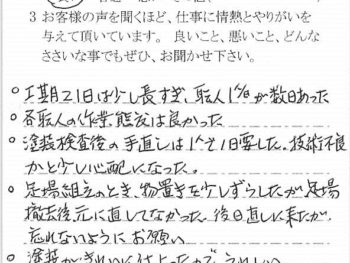 3 お客様の声を聞くほど、仕事に情熱とやりがいを
与えて頂いています。 良いこと、悪いこと、どんな
ささいな事でもぜひ、お聞かせ下さい。
○ 工期21日は少し長すぎ、職人1人の日が数日あった
○ 各職人の作業、態度は良かった
○ 塗装検査後の手直しは1人で1日要した。技術不良
かと少し心配になった。
○ 足場組立のとき、物置きを少しずらしたが足場
撤去後元に直してなかった。後日直しに来たが
忘れないようにお願い
○ 塗装がきれいに仕上ったのでうれしい